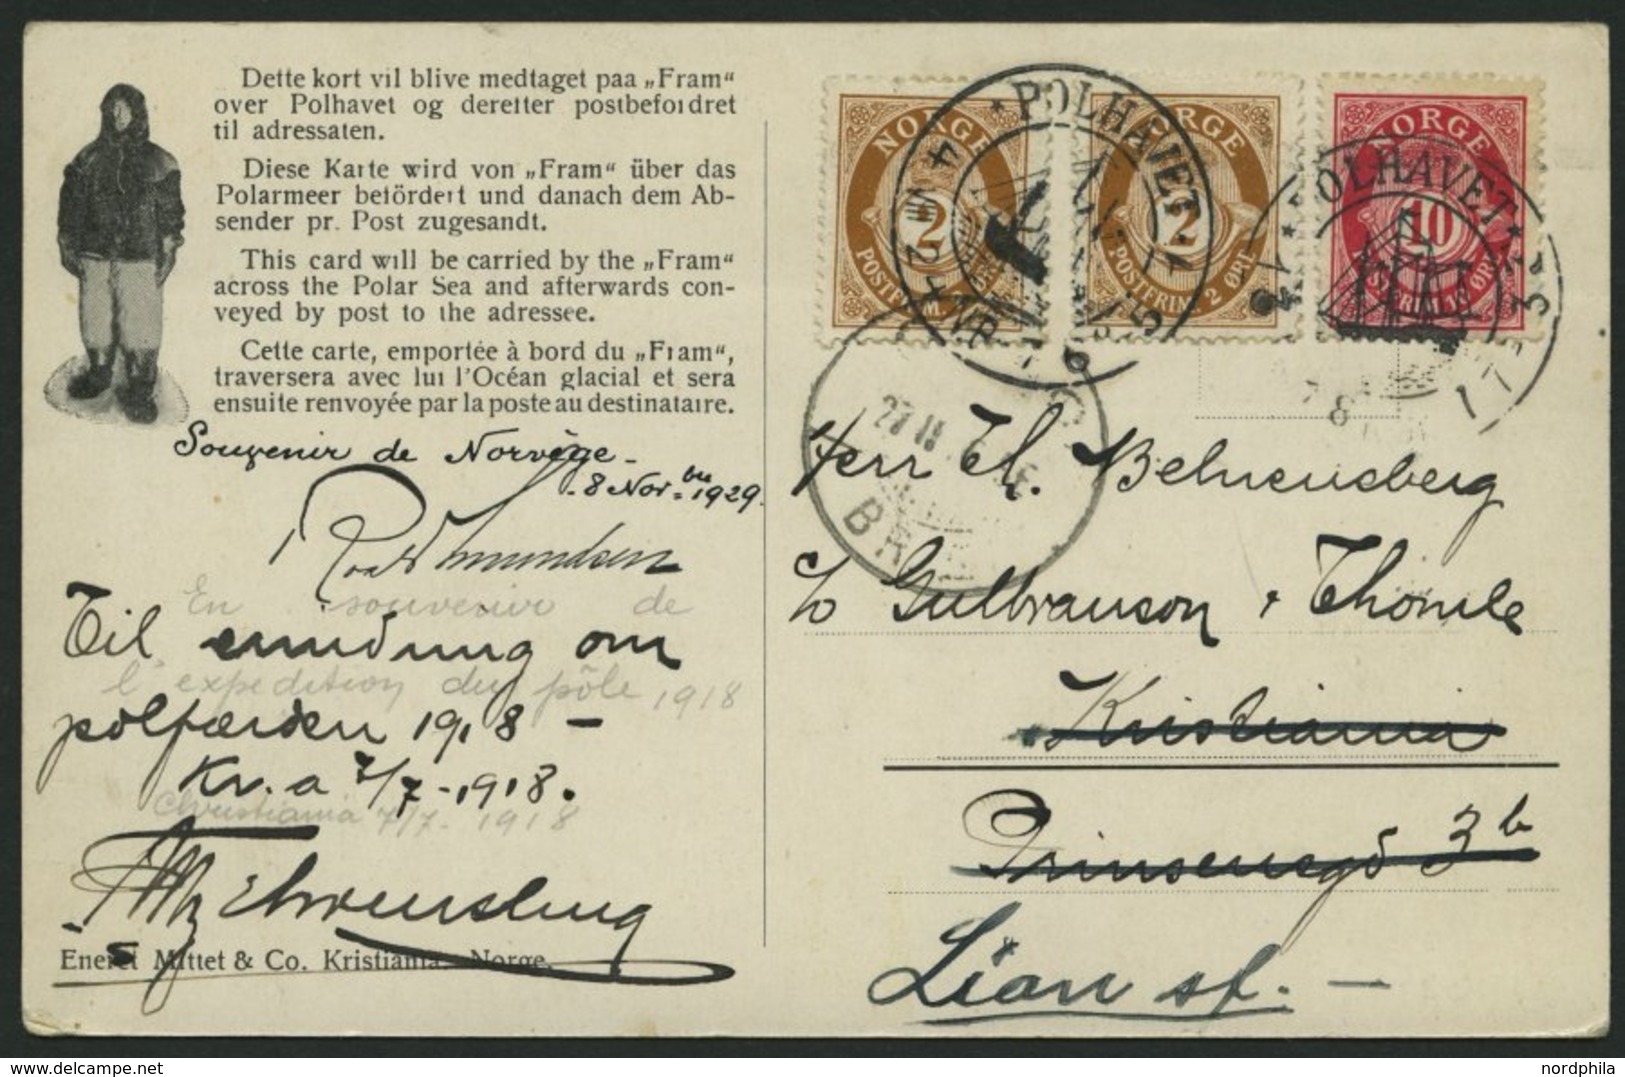 Dette kort vil blive medtaget paa „Fram“
over Polhavet og derefter postbefordret
til adressaten.
Diese Karte wird von „Fram“ über das
Polarmeer befördert und danach dem Ab-
sender pr. Post zugesandt.
This card will be carried by the „Fram“
across the Polar Sea and afterwards con-
veyed by post to the adressee.
Cette carte, emportée à bord du „Fram“,
traversera avec lui l'Océan glacial et sera
ensuite renvoyée par la poste au destinataire.
Souvenir de Norvège -
8 Novbre 1929.
Roald Amundsen
En souvenir de
l'expedition du pôle 1918
Christiania 7/7 - 1918
Til erindring om
polfærden 1918 -
Kr.a 7/7 - 1918.
Eneret Mittet & Co. Kristiania - Norge.
NORGE
2
POSTFRIM. 2 ØRE
NORGE
2
POSTFRIM. 2 ØRE
NORGE
10
POSTFRIM. 10 ØRE
POLHAVET
POLHAVET
27 II
BR
Herr Th. Behrensberg
c/o Gulbranson & Thomle
Kristiania
Prinsensgd 3b
Lian st. -
nordphila